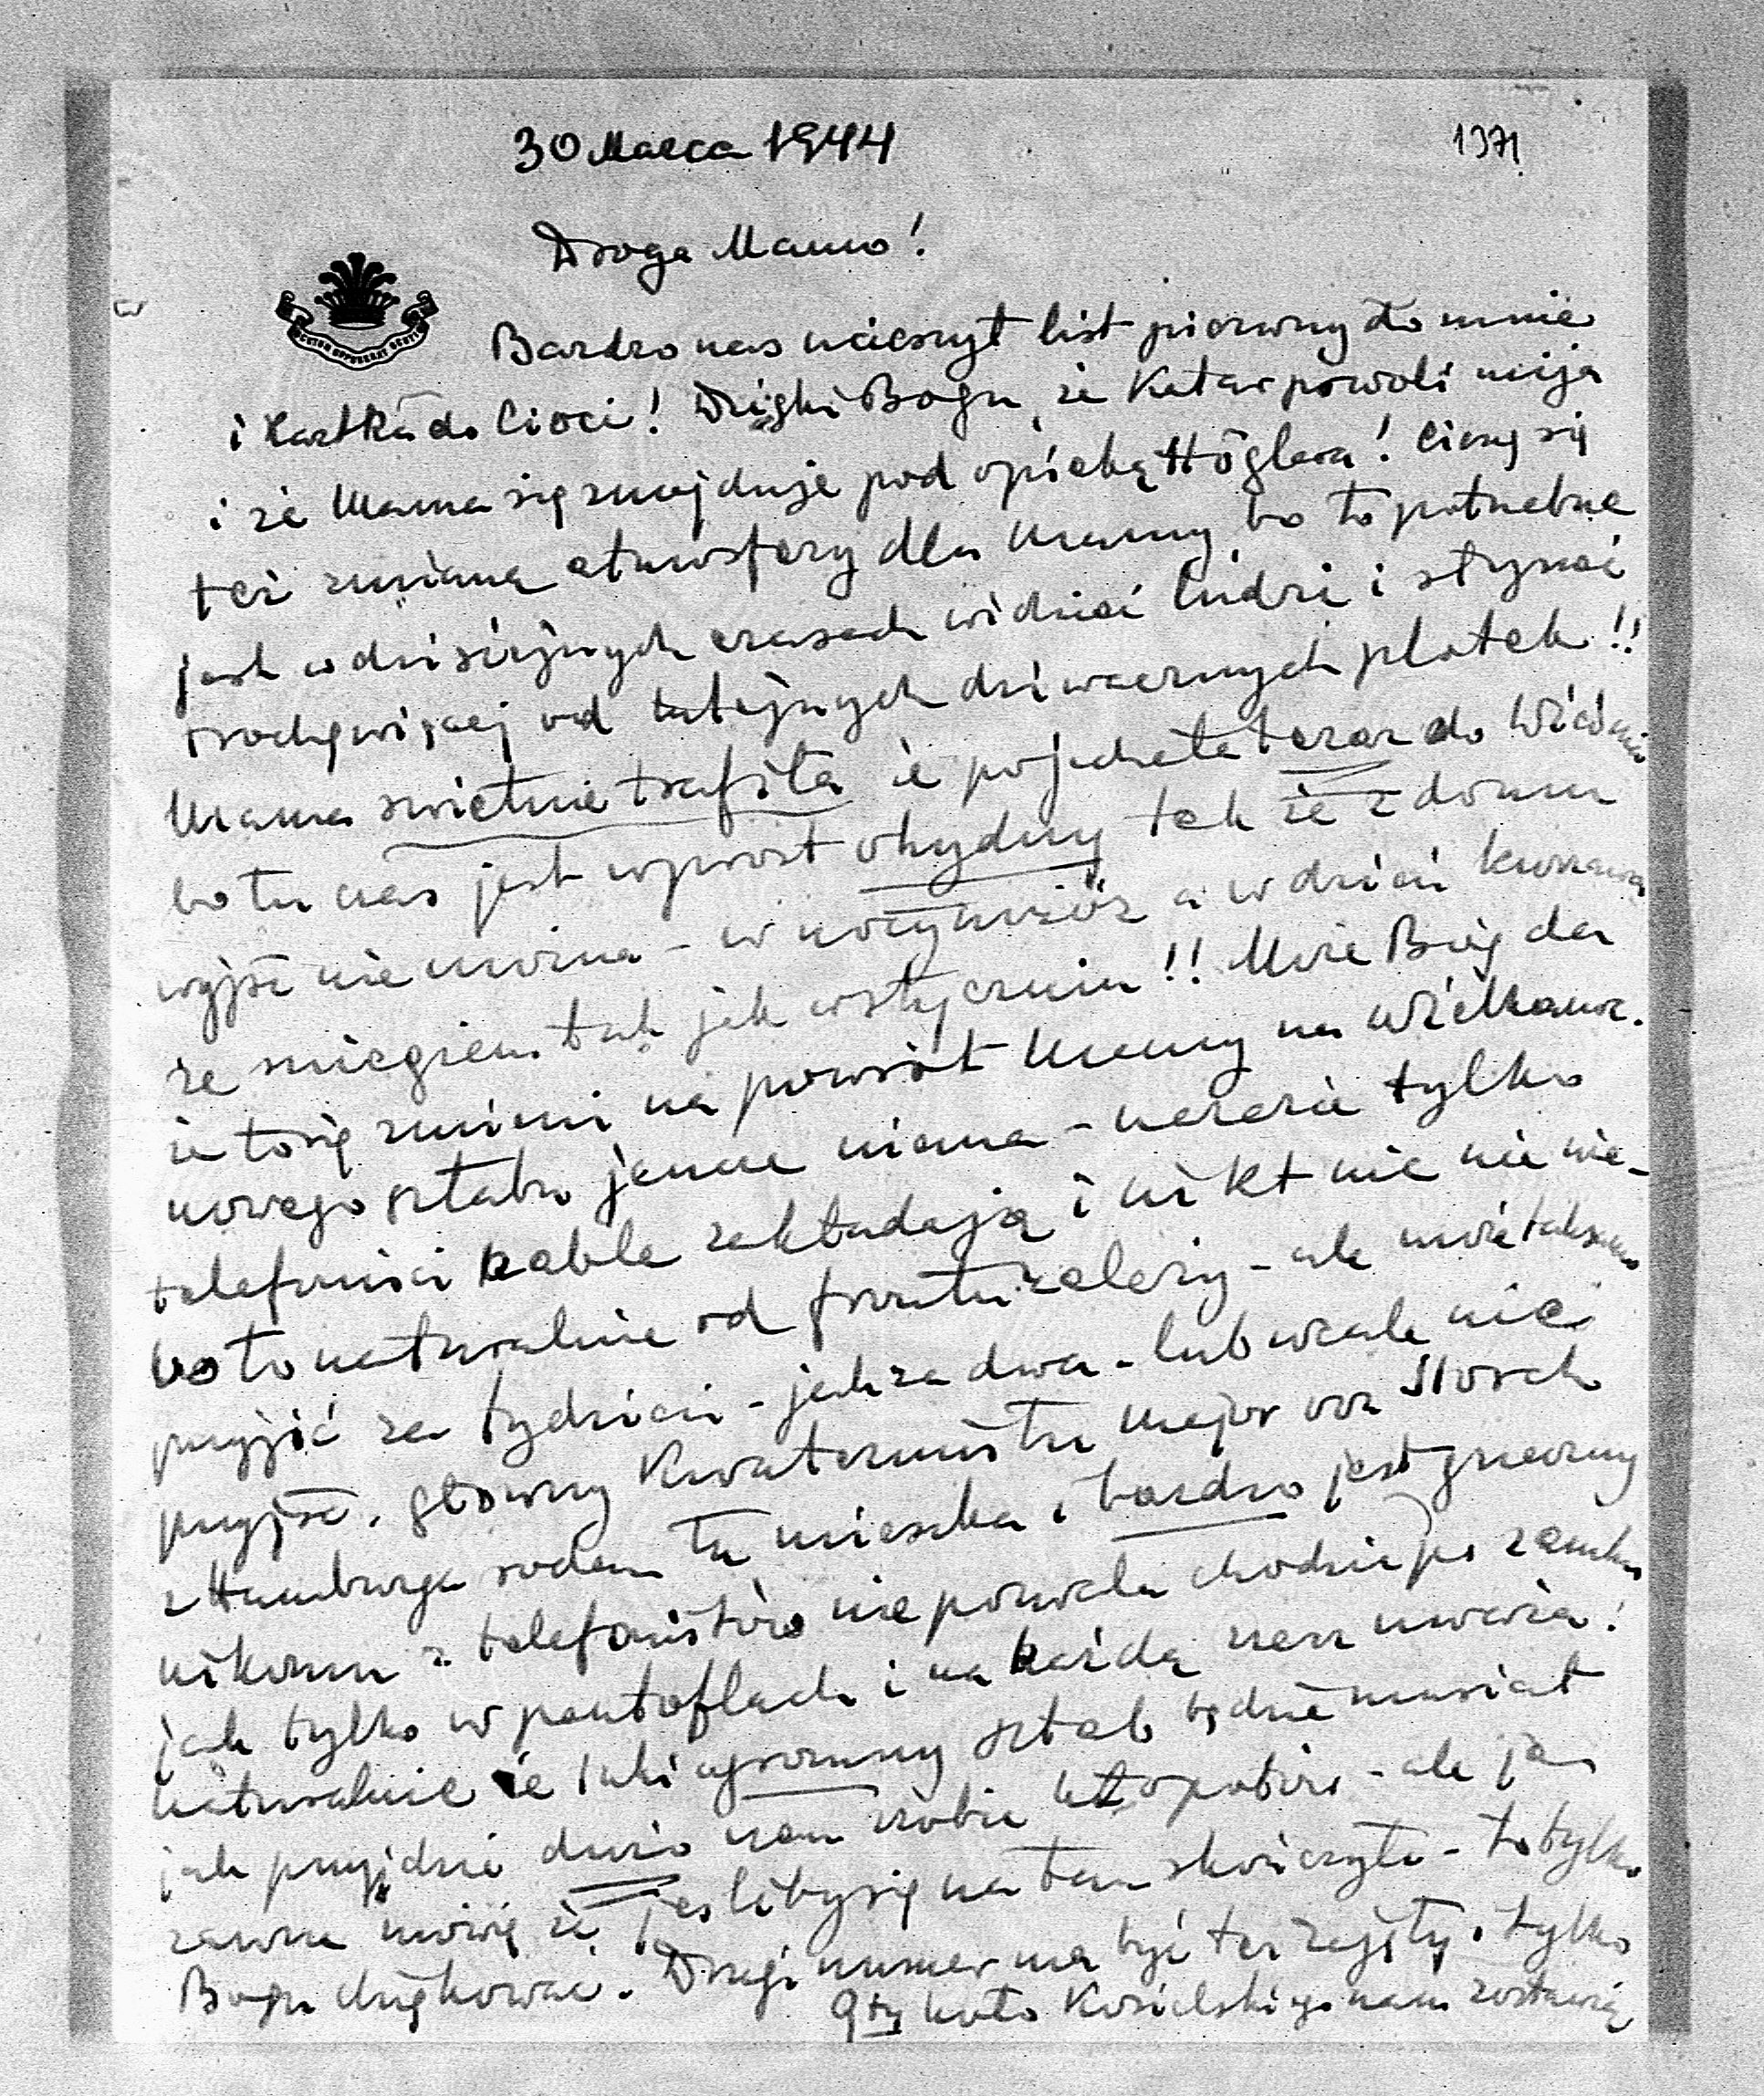 30 Marca 1944
1371
Droga Mamo!
Bardzo nas ucieszył list pierwszy do mnie
i kartka do Cioci! Dzięki Bogu, że Katar powoli mija
i że Mama się znajduje pod opieką Höglera! Cieszę się
też zmianą atmosfery dla Mamy, bo to potrzebne
jest w dzisiejszych czasach widzieć ludzi i słyszeć
trochę więcej od tutejszych dziwacznych plotek!!
Mama świetnie trafiła że pojechała teraz do Wiednia
bo tu czas jest wprost ohydny tak że z domu
wyjść nie można - w nocy mróz a w dzień kurzawa
ze śniegiem tak jak w styczniu!! Może Bóg da
że to się zmieni na powrót Mamy na Wielkanoc.
nowego sztabu jeszcze niema - narazie tylko
telefoniści kable zakładają i nikt nic nie wie -
bo to naturalnie od frontu zależy - ale może tak samo
przyjść za tydzień - jak za dwa - lub wcale nie
przyjść. główny Kwatermistrz major von Storch
z Hamburga rodem tu mieszka i bardzo jest grzeczny
nikomu z telefonistów nie pozwala chodzić po zamku
jak tylko w pantoflach i na każdą rzecz uważa!
naturalnie że taki ogromny sztab będzie musiał
jak przyjdzie dużo nam zrobić kłopotów - ale ja
zawsze mówię że jeśliby się na tem skończyło - to tylko
Bogu dziękować. Drugi numer ma być też zajęty, tylko
9ty koło Kosielskiego nam zostawią